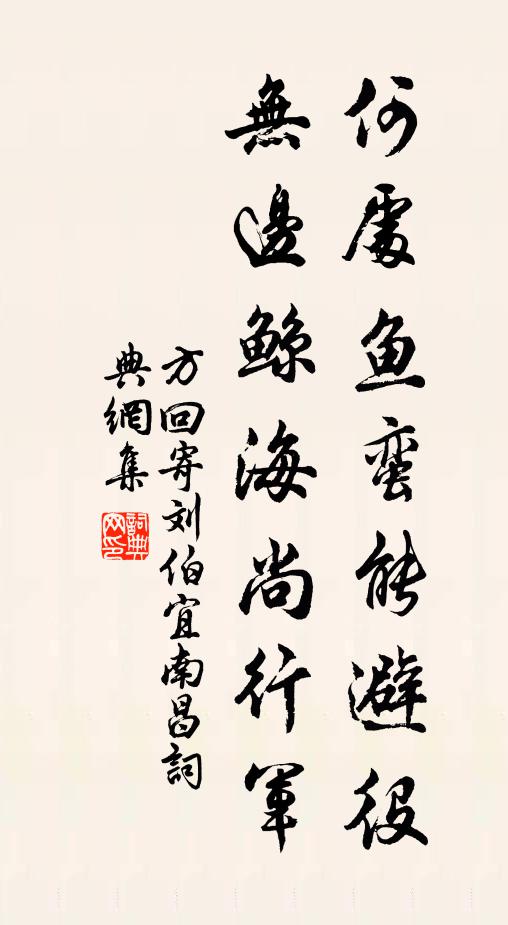 何處鱼蛮能避役
無邊鲸海尚行軍
方回寄刘伯宜南昌詞
典網集
詞典网印